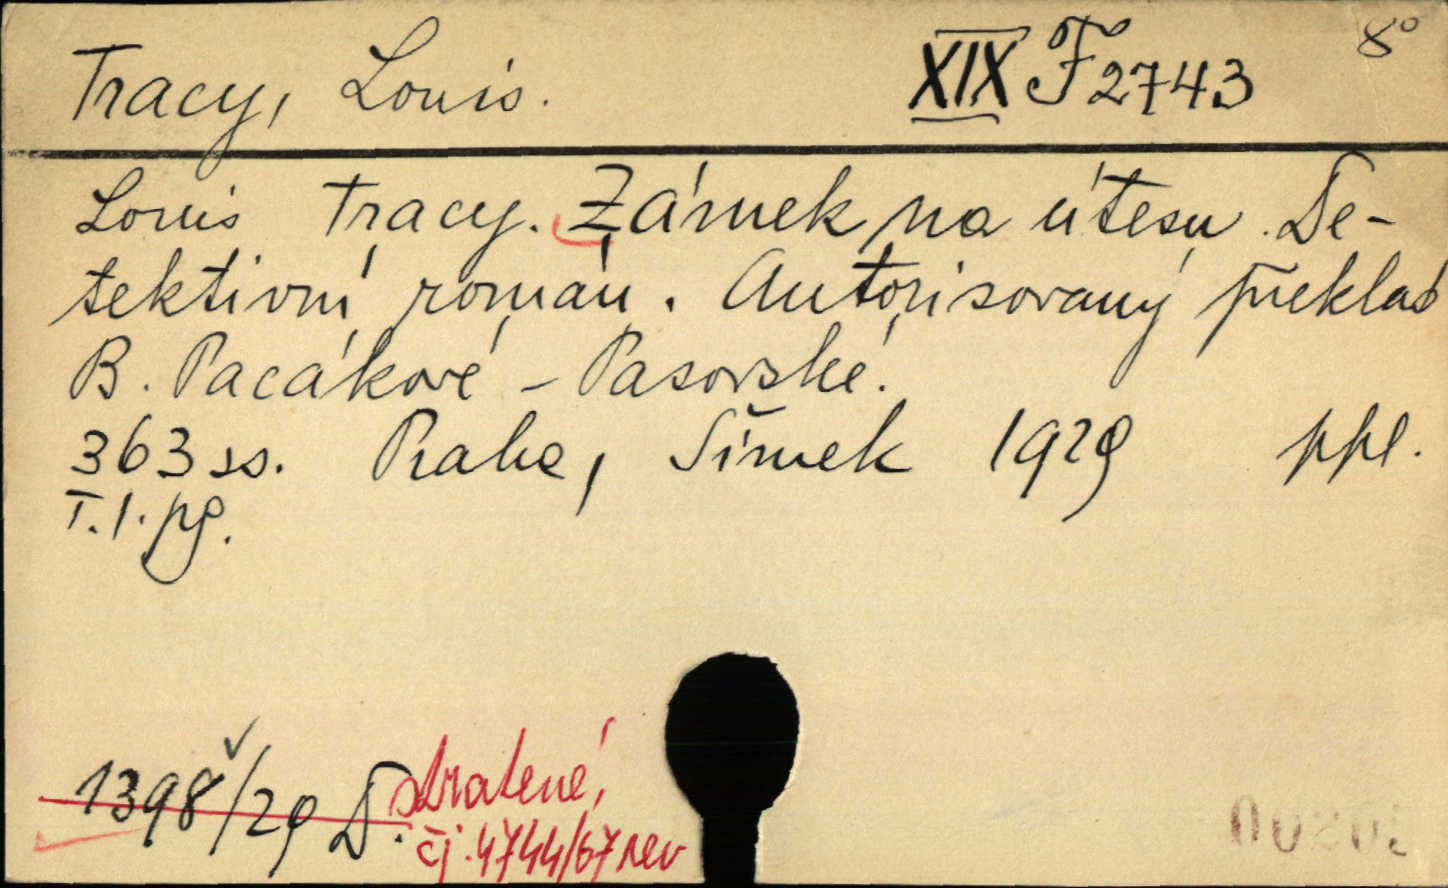 Tracy, Louis. XIX F 2743 8°
Louis Tracy. Zámek na útesu. De-
tektivní román. Autorisovaný překlad
B. Pacákové - Pasovské.
363 ss. Praha, Šimek 1929 ppl.
T.l.pg.
1398/29 D. stratené,
čj. 4744/67 rev